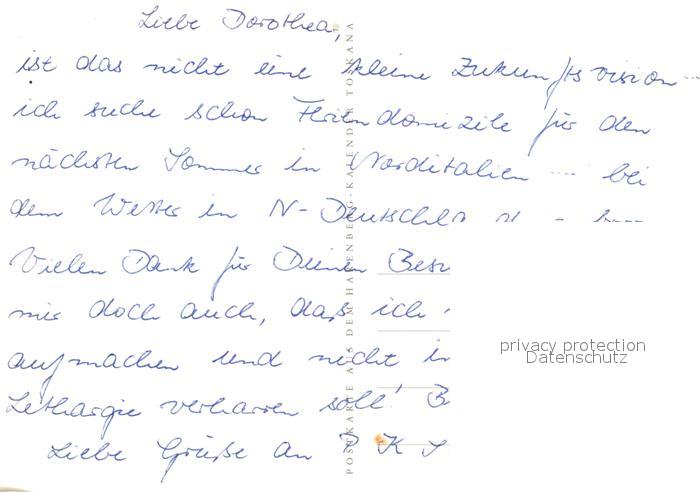 Liebe Dorothea,
ist das nicht eine kleine Zukunftsvision ...
ich suche schon Feriendomizile für den
nächsten Sommer in Norditalien .... bei
dem Wetter in N-Deutschl
Vielen Dank für Deinen
mir doch auch, daß ich
aufmachen und nicht in
Lethargie verharren soll!
Liebe Grüße an
POSTKARTE AUS DEM HARENBERG-KALENDER TOSKANA
privacy protection
Datenschutz